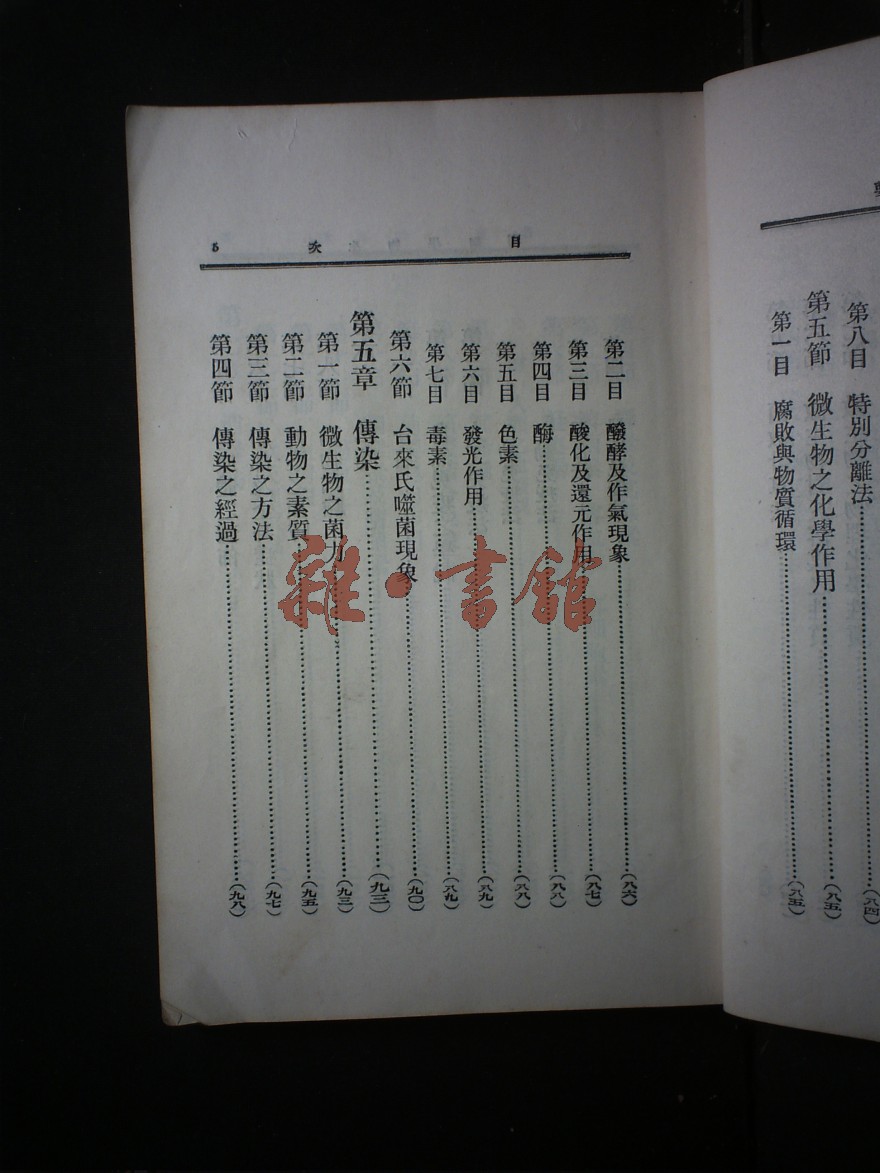 第八目 特別分離法……(八四)
第五節 微生物之化學作用……(八五)
第一目 腐敗與物質循環……(八五)
目 次 5
第二目 醱酵及作氣現象……(八六)
第三目 酸化及還元作用……(八七)
第四目 酶……(八八)
第五目 色素……(八八)
第六目 發光作用……(八九)
第七目 毒素……(八九)
第六節 台來氏噬菌現象……(九〇)
第五章 傳染……(九三)
第一節 微生物之菌力……(九三)
第二節 動物之素質……(九五)
第三節 傳染之方法……(九七)
第四節 傳染之經過……(九八)
雜·書館